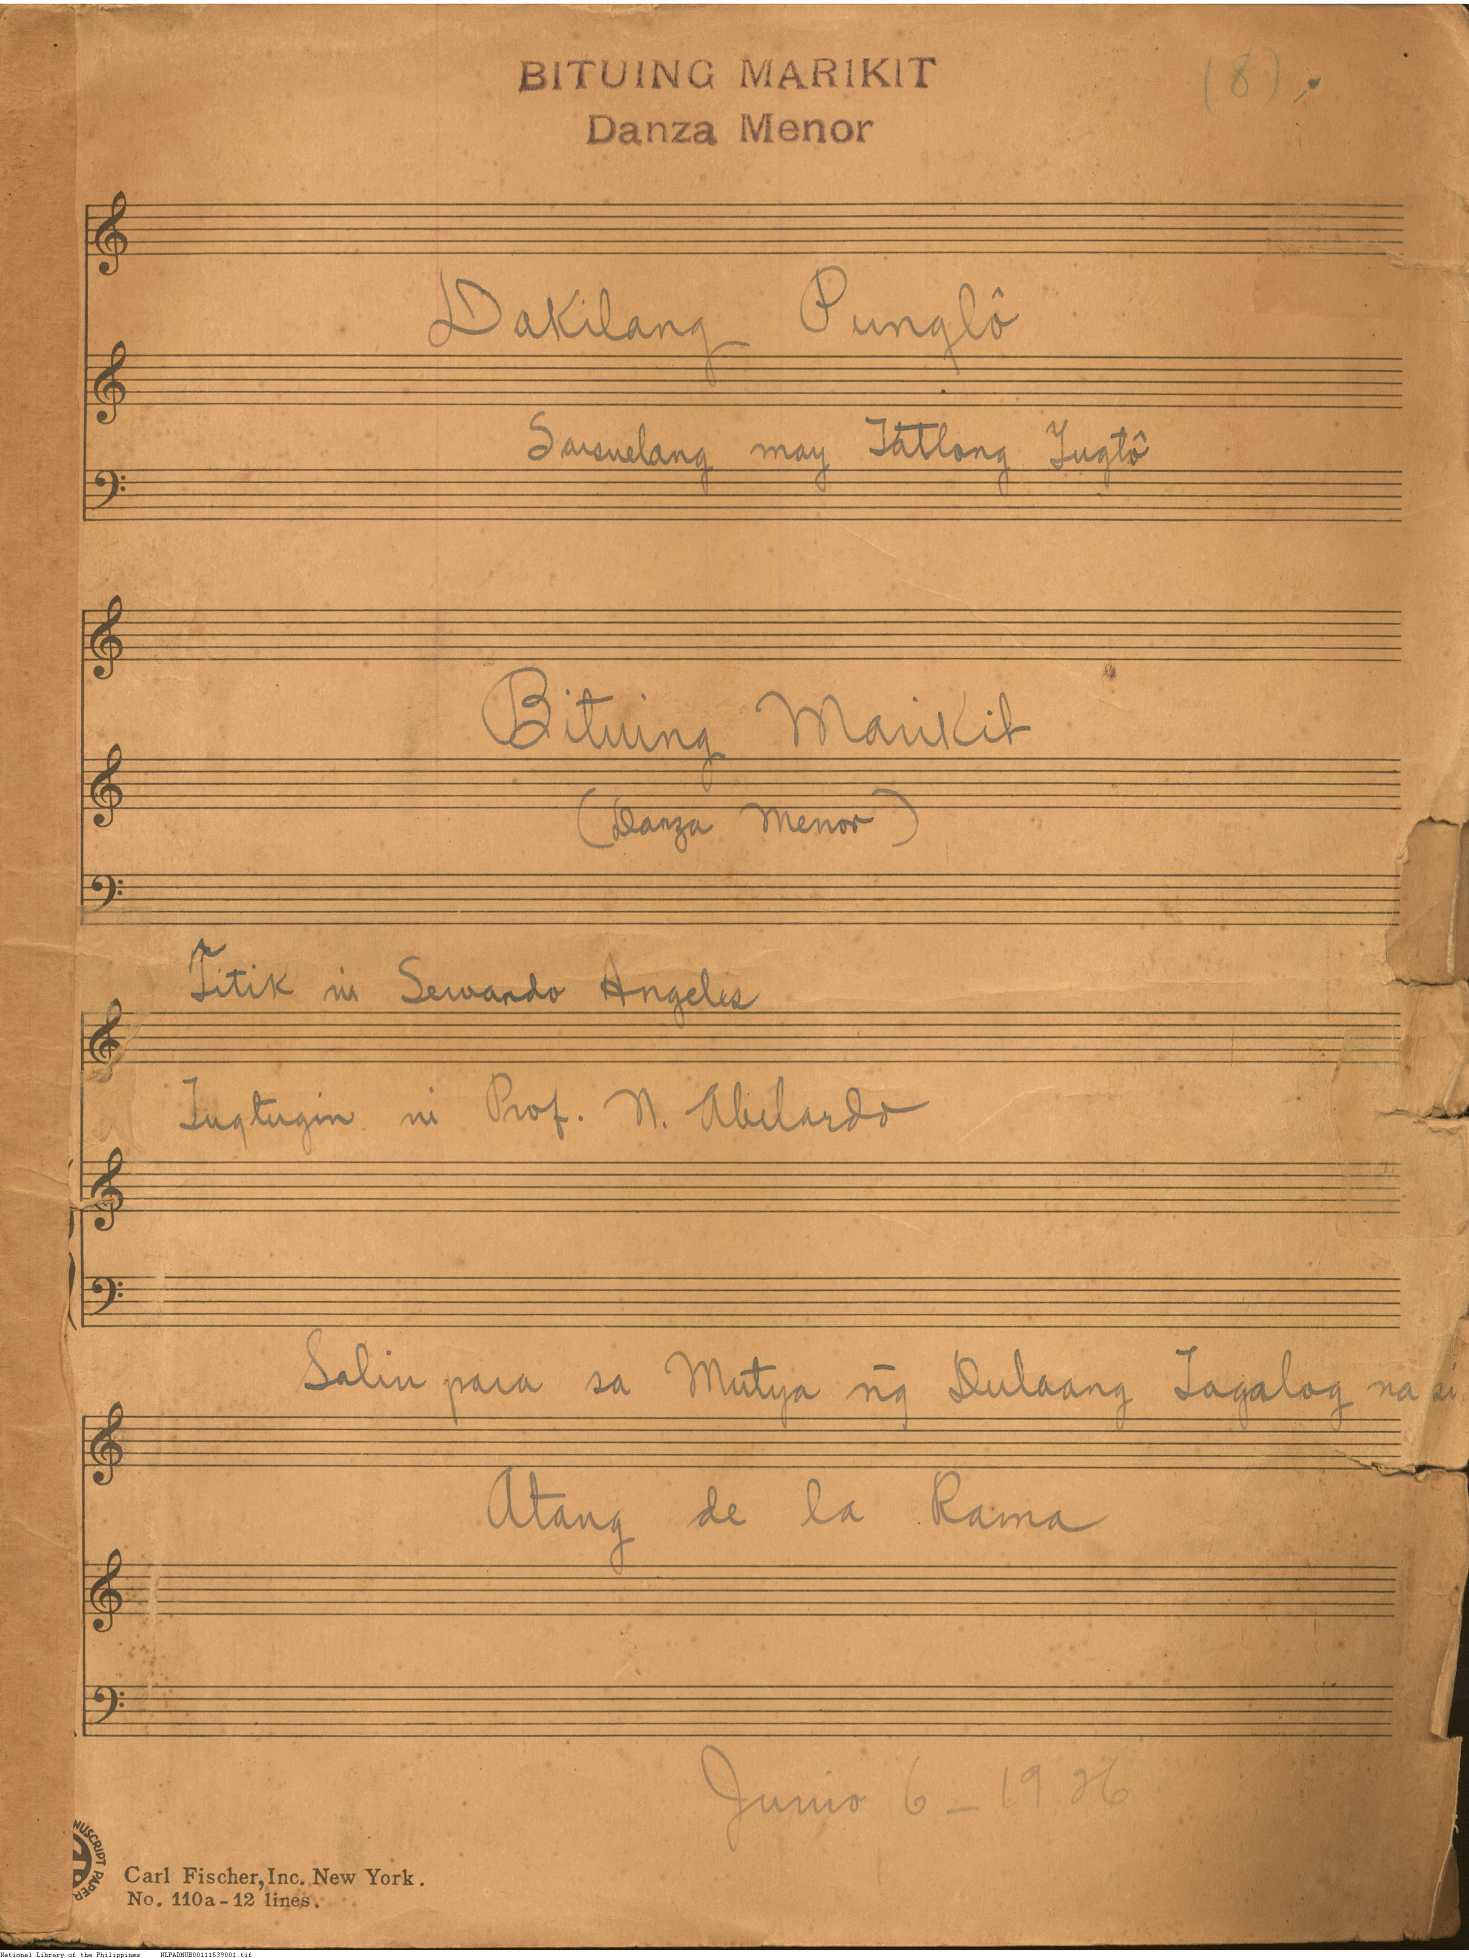 BITUING MARIKIT
(8)
Danza Menor
Dakilang Punglô
Sarsuelang may Tatlong Yugtô
Bituing Marikit
(Danza Menor)
Titik ni Servando Angeles
Tugtugin ni Prof. N. Abelardo
Salin para sa Mutya n̄g Dulaang Tagalog na si
Atang de la Rama
Junio 6 - 1926
NUSCRIPT PAPER
Carl Fischer, Inc. New York.
No. 110a - 12 lines.
National Library of the Philippines NLPADMUB00111539001.tif